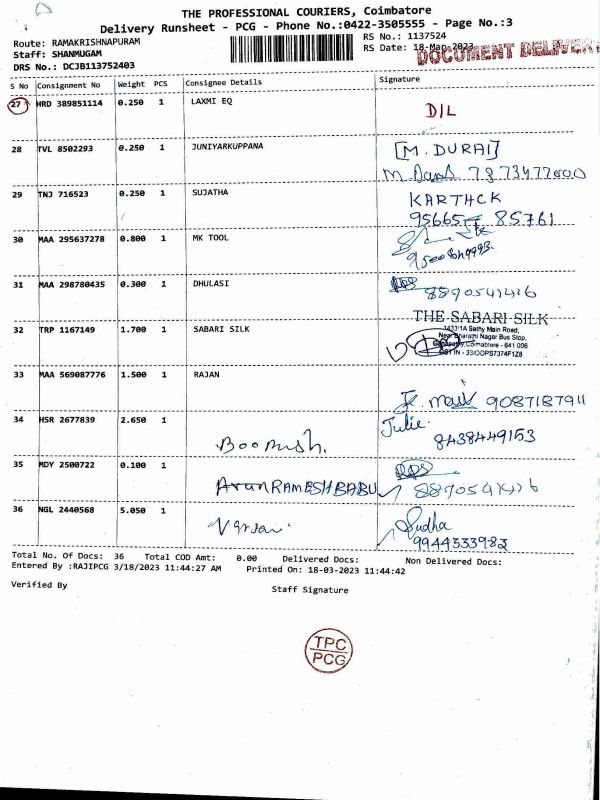 THE PROFESSIONAL COURIERS, Coimbatore
Delivery Runsheet - PCG - Phone No.:0422-3505555 - Page No.:3
Route: RAMAKRISHNAPURAM RS No.: 1137524
Staff: SHANMUGAM RS Date: 18-Mar-2023
DOCUMENT DELIVER
DRS No.: DCJB113752403
S No Consignment No Weight PCS Consignee Details Signature
27 HRD 389851114 0.250 1 LAXMI EQ
D/L
28 TVL 8502293 0.250 1 JUNIYARKUPPANA
[M. DURAI]
29 TNJ 716523 0.250 1 SUJATHA KARTHCK
95665 85761
30 MAA 295637278 0.800 1 MK TOOL
31 MAA 298780435 0.300 1 DHULASI
8890541426
THE SABARI SILK
32 TRP 1167149 1.700 1 SABARI SILK 1433/1A Sathy Main Road,
Near Bharathi Nagar Bus Stop,
Coimabtore - 641 006
GSTIN - 33IOOPS7374F1Z8
33 MAA 569087776 1.500 1 RAJAN
9087187911
34 HSR 2677839 2.650 1 Julie
8438449153
35 MDY 2500722 0.100 1
Arun RAMESH BABU 8890541426
36 NGL 2440568 5.050 1 Sudha
9944533982
Total No. Of Docs: 36 Total COD Amt: 0.00 Delivered Docs: Non Delivered Docs:
Entered By :RAJIPCG 3/18/2023 11:44:27 AM Printed On: 18-03-2023 11:44:42
Verified By Staff Signature
TPC
PCG